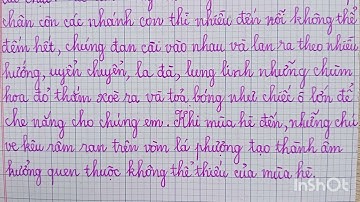 chân còn các nhánh con thì nhiều đến nỗi không thể
đếm hết, chúng đan cài vào nhau và lan ra theo nhiều
hướng, uyển chuyển, la đà, lung linh những chùm
hoa đỏ thắm xoè ra và toả bóng như chiếc ô lớn để
che nắng cho chúng em. Khi mùa hè đến, những chú
ve kêu râm ran trên vòm lá phượng tạo thành âm
hưởng quen thuộc không thể thiếu của mùa hè.
InShOt